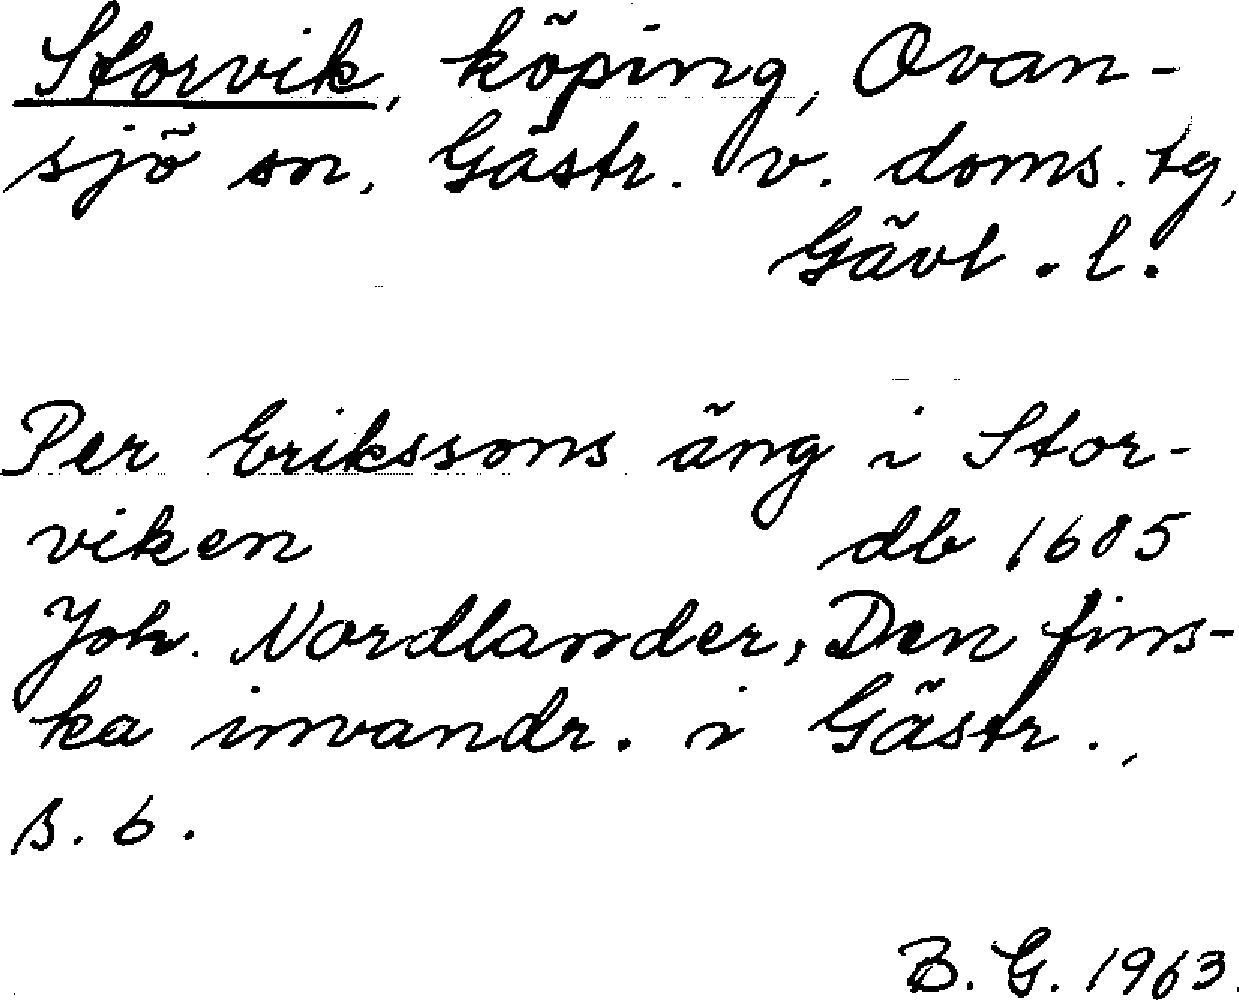 Storvik, köping, Ovan-
sjö sn, Gästr. v. doms. tg,
Gävl. l.
Per Erikssons äng i Stor-
viken db 1685
Joh. Nordlander, Den fins-
ka invandr. i Gästr.,
s. 6.
B. G. 1963.